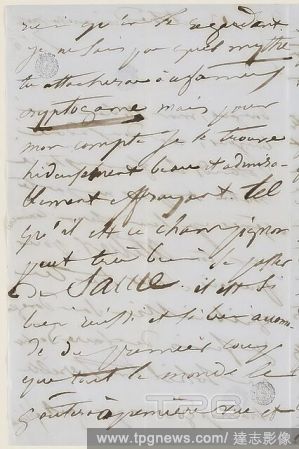 rien qu'en le regardant
je ne sais pas quel mythe
tu attacheras à ce fameux
cryptogame mais pour
mon compte je le trouve
hideusement beau et admira-
blement effrayant. tel
qu'il est ce champignon
peut très bien se passer
de sauce il est si
bien réussi et si bien
de premier coup
que tout le monde le
goûtera à première vue et
TPG
www.tpgnews.com / 達志影像